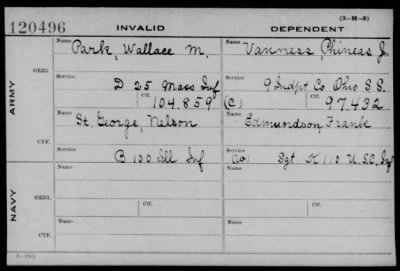 (3-H-5)
120496 INVALID DEPENDENT
ARMY
ORIG.
Name Park, Wallace M. Name Vanness, Phineas J.
Service D 25 Mass Inf Service 9 Indpt Co Ohio S.S.
Ctf. 104.859 (C) Ctf. 97.432
CTF.
Name St. George, Nelson Name Edmundson Frank
Service B 100 Ill Inf Service Sgt K 110 U.S.C. Inf
NAVY
ORIG.
Name Name
Service Ctf. Service Ctf.
CTF.
Name Name
Service Service